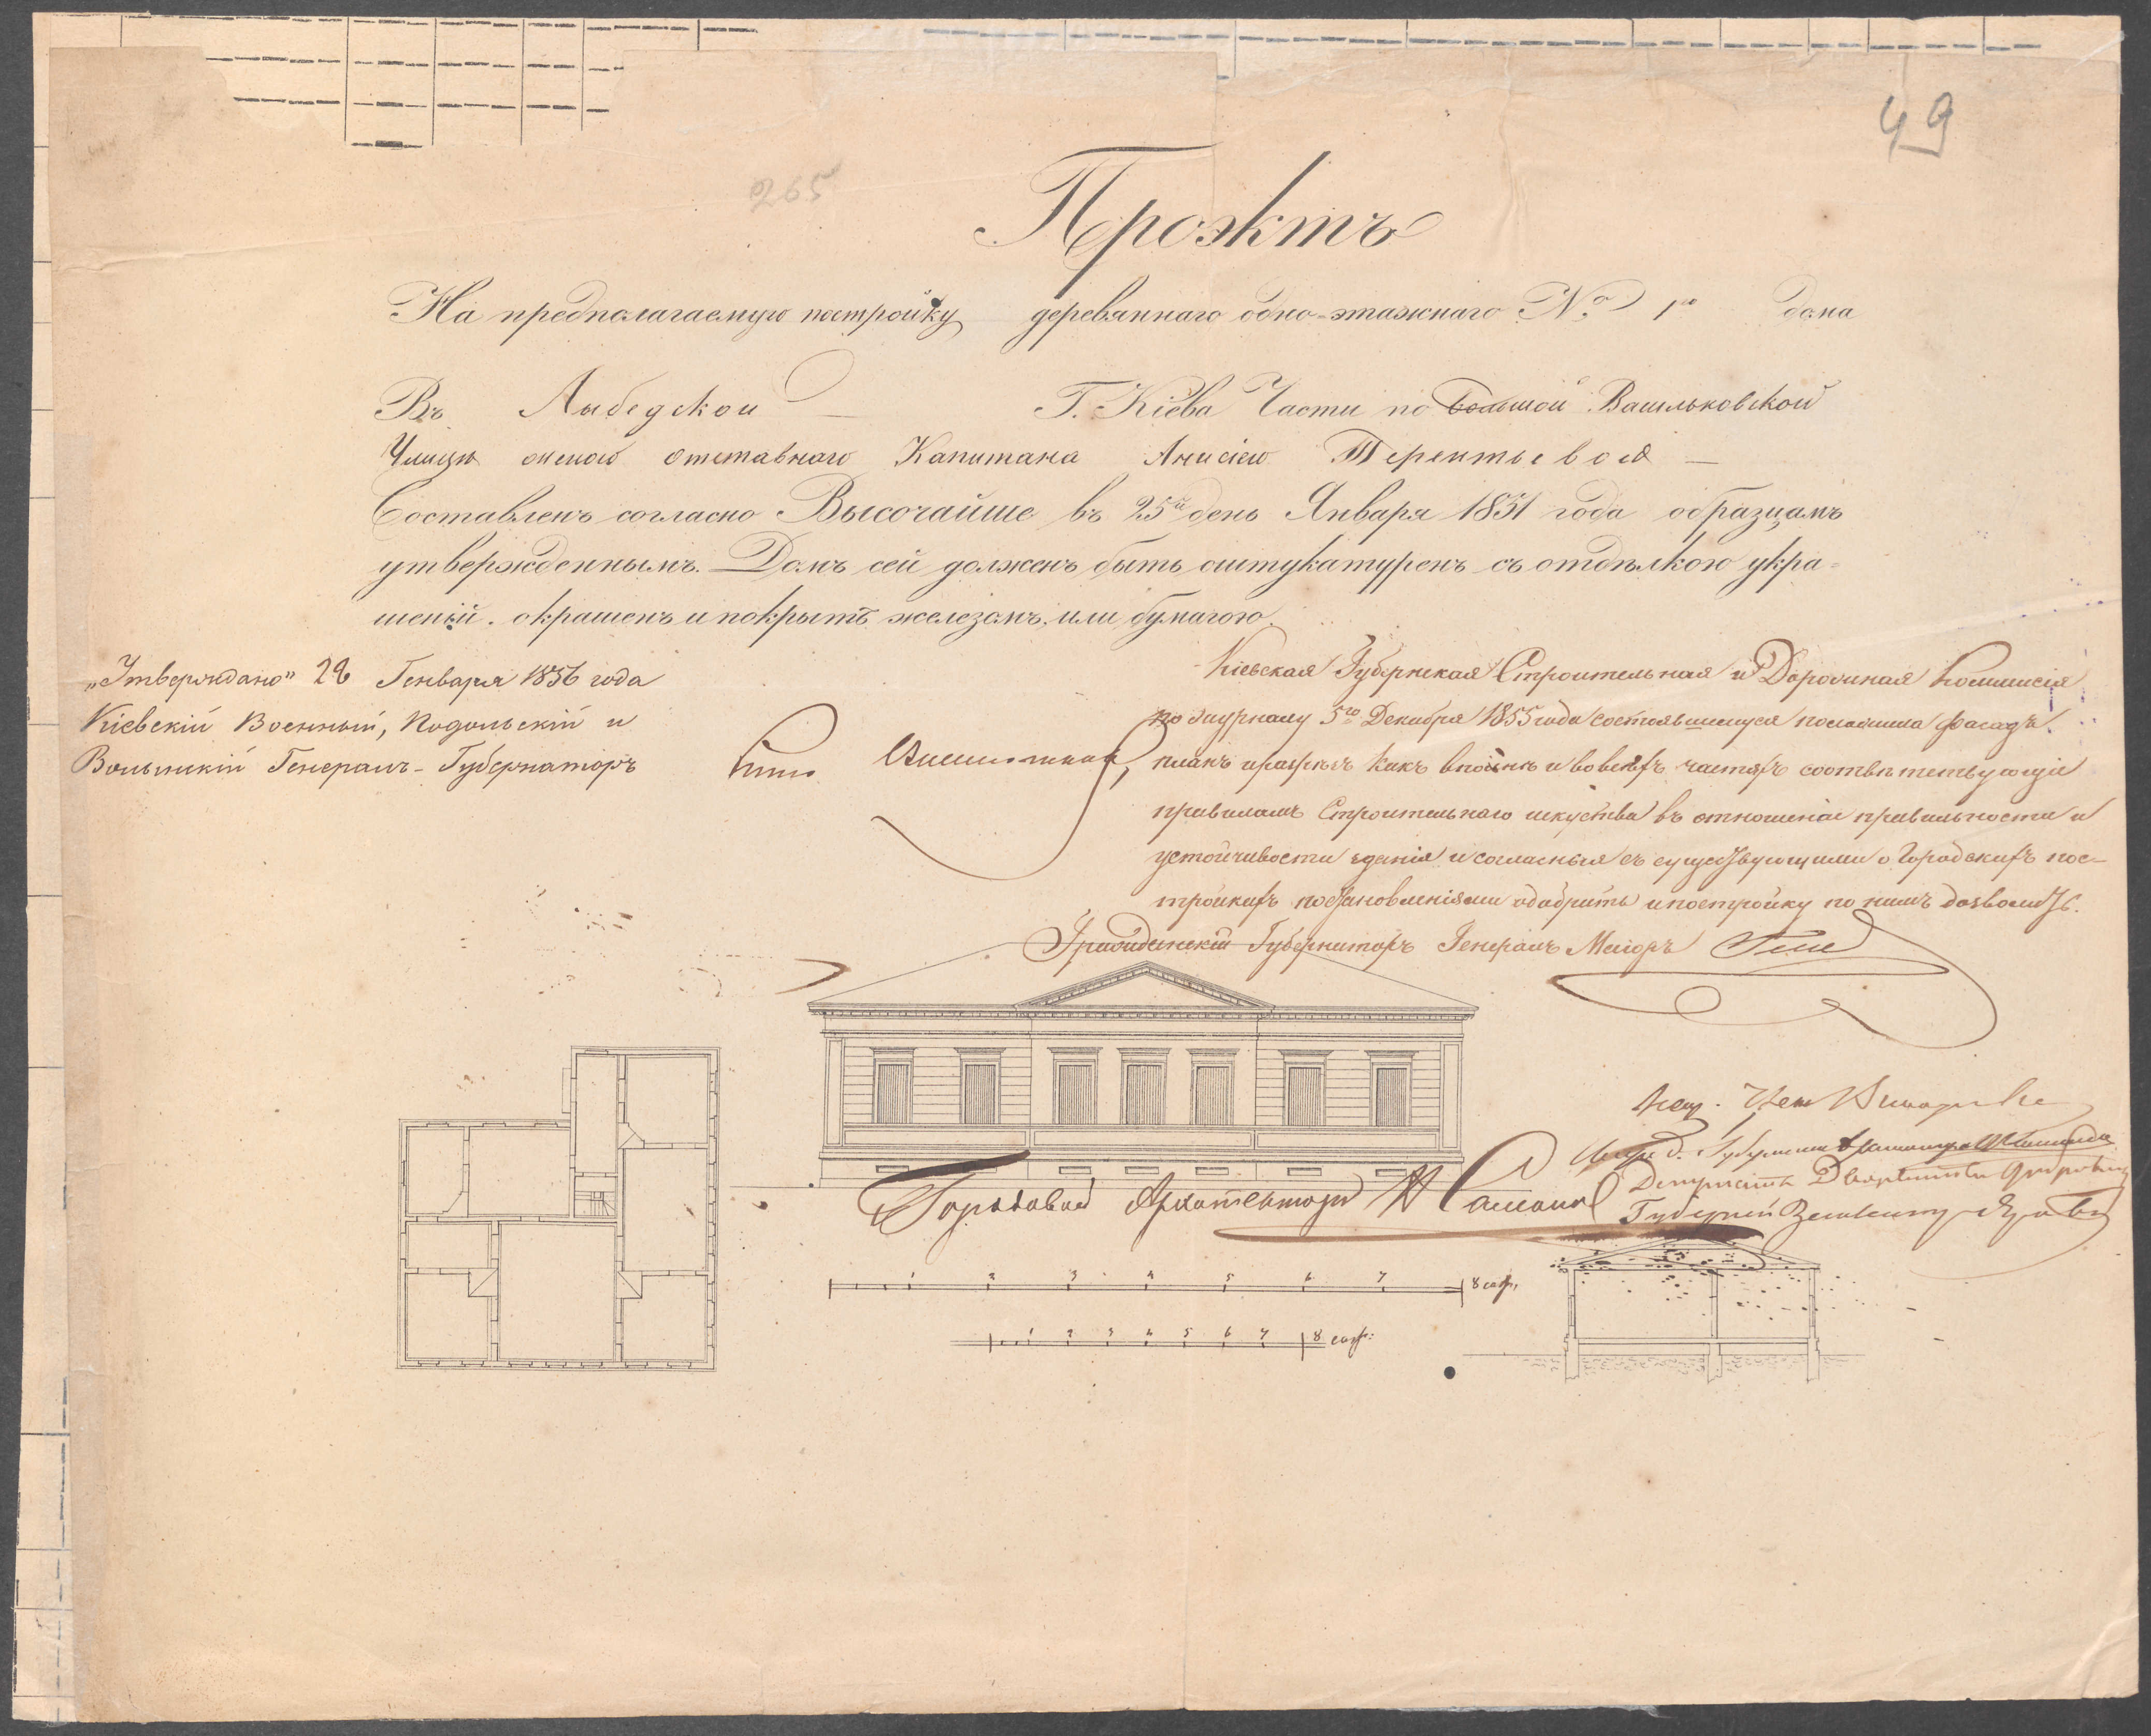 49
265
Проэктъ
На предполагаемую постройку деревяннаго одно-этажнаго № 1го дома
Въ Лыбедской Г. Кіева Части по Большой Васильковской
Улицѣ женою отставнаго Капитана Анисіею Терентьевой
Составленъ согласно Высочайше въ 25й день Января 1851 года образцамъ
утвержденнымъ. Домъ сей долженъ быть оштукатуренъ съ отдѣлкою укра-
шеній. окрашенъ и покрытъ железомъ, или бумагою.
„Утверждаю" 28 Генваря 1856 года
Кіевскій Военный, Подольскій и
Волынскій Генералъ-Губернаторъ
Кіевская Губернская Строительная и Дорожная Коммисія
по журналу 5го Декабря 1855 года состоявшемуся положила фасадъ,
планъ и разрезъ какъ вполнѣ и во всѣхъ частяхъ соотвѣтствующіе
правиламъ Строительнаго искуства въ отношеніи правильности и
устойчивости зданія и согласныя съ существующими о Городскихъ пос-
тройкахъ постановленіями одобрить и постройку по нимъ дозволить.
Гражданскій Губернаторъ Генералъ Маіоръ
Городовой Архитекторъ
Депутатъ Дворянства
1 2 3 4 5 6 7 8 саж,
1 2 3 4 5 6 7 8 саж: